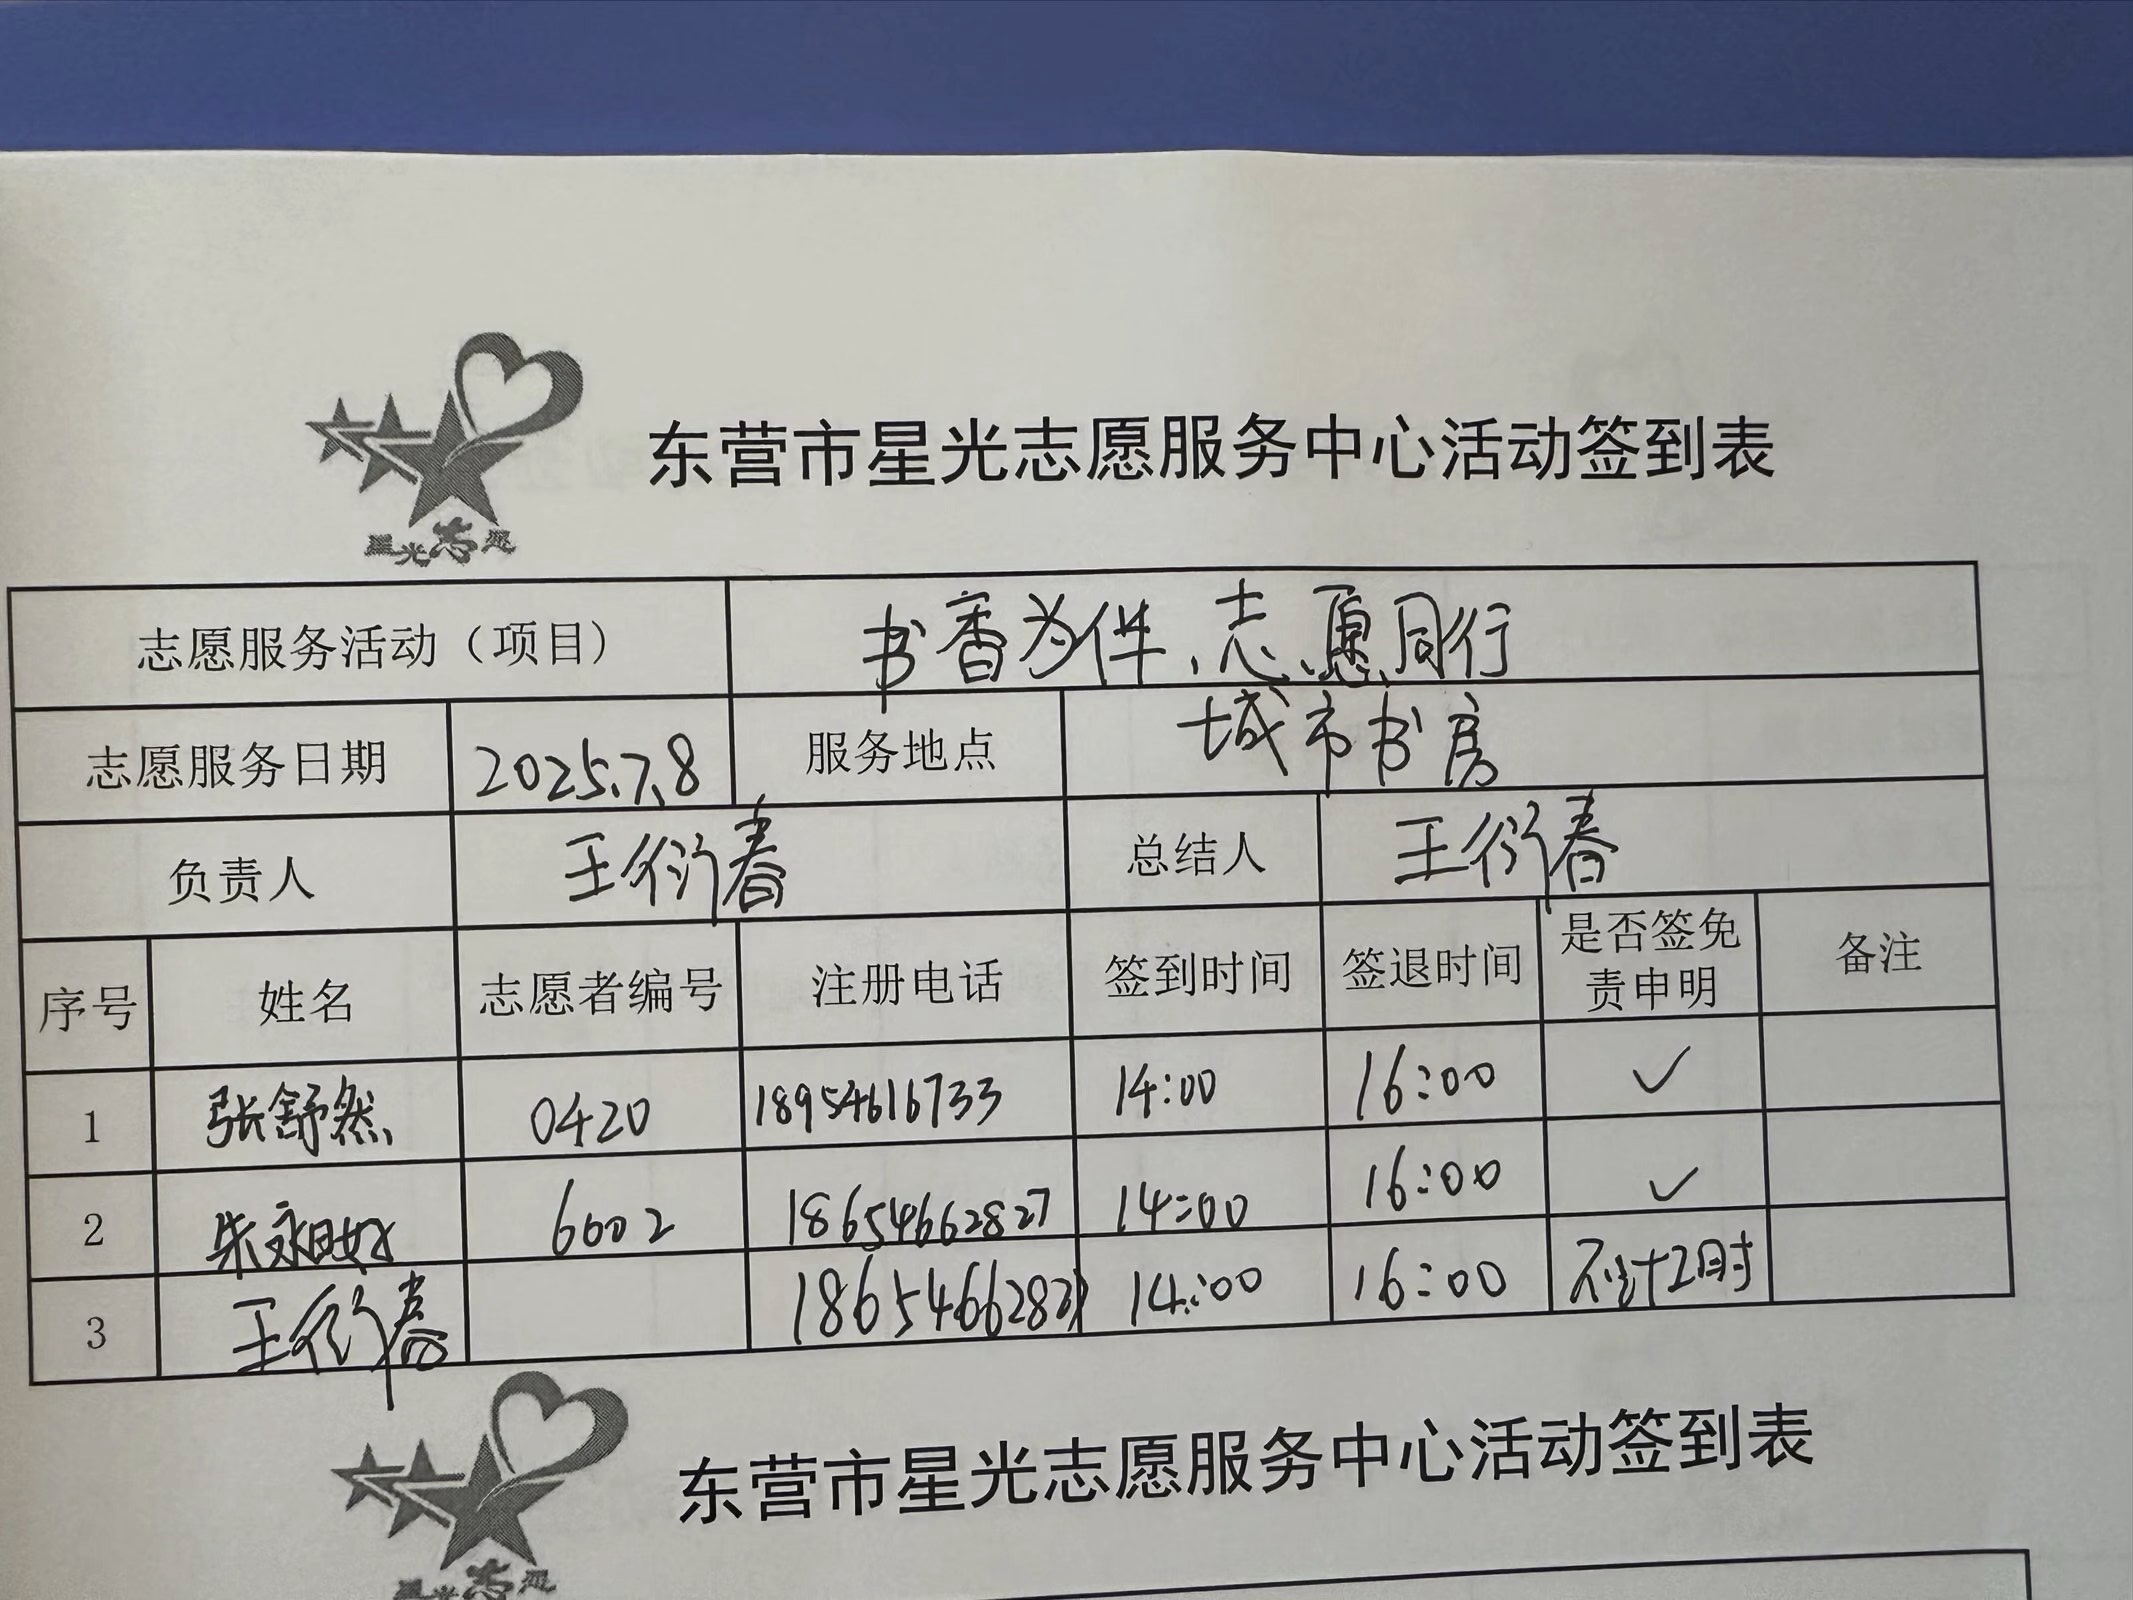 星光志愿
东营市星光志愿服务中心活动签到表
志愿服务活动（项目） 书香为伴、志愿同行
志愿服务日期 2025.7.8 服务地点 城市书房
负责人 王衍春 总结人 王衍春
序号 姓名 志愿者编号 注册电话 签到时间 签退时间 是否签免责申明 备注
1 张舒然 0420 18954616733 14:00 16:00 ✓
2 朱 6002 18654662827 14:00 16:00 ✓
3 王衍春 14:00 16:00 不计2时
东营市星光志愿服务中心活动签到表
星光志愿